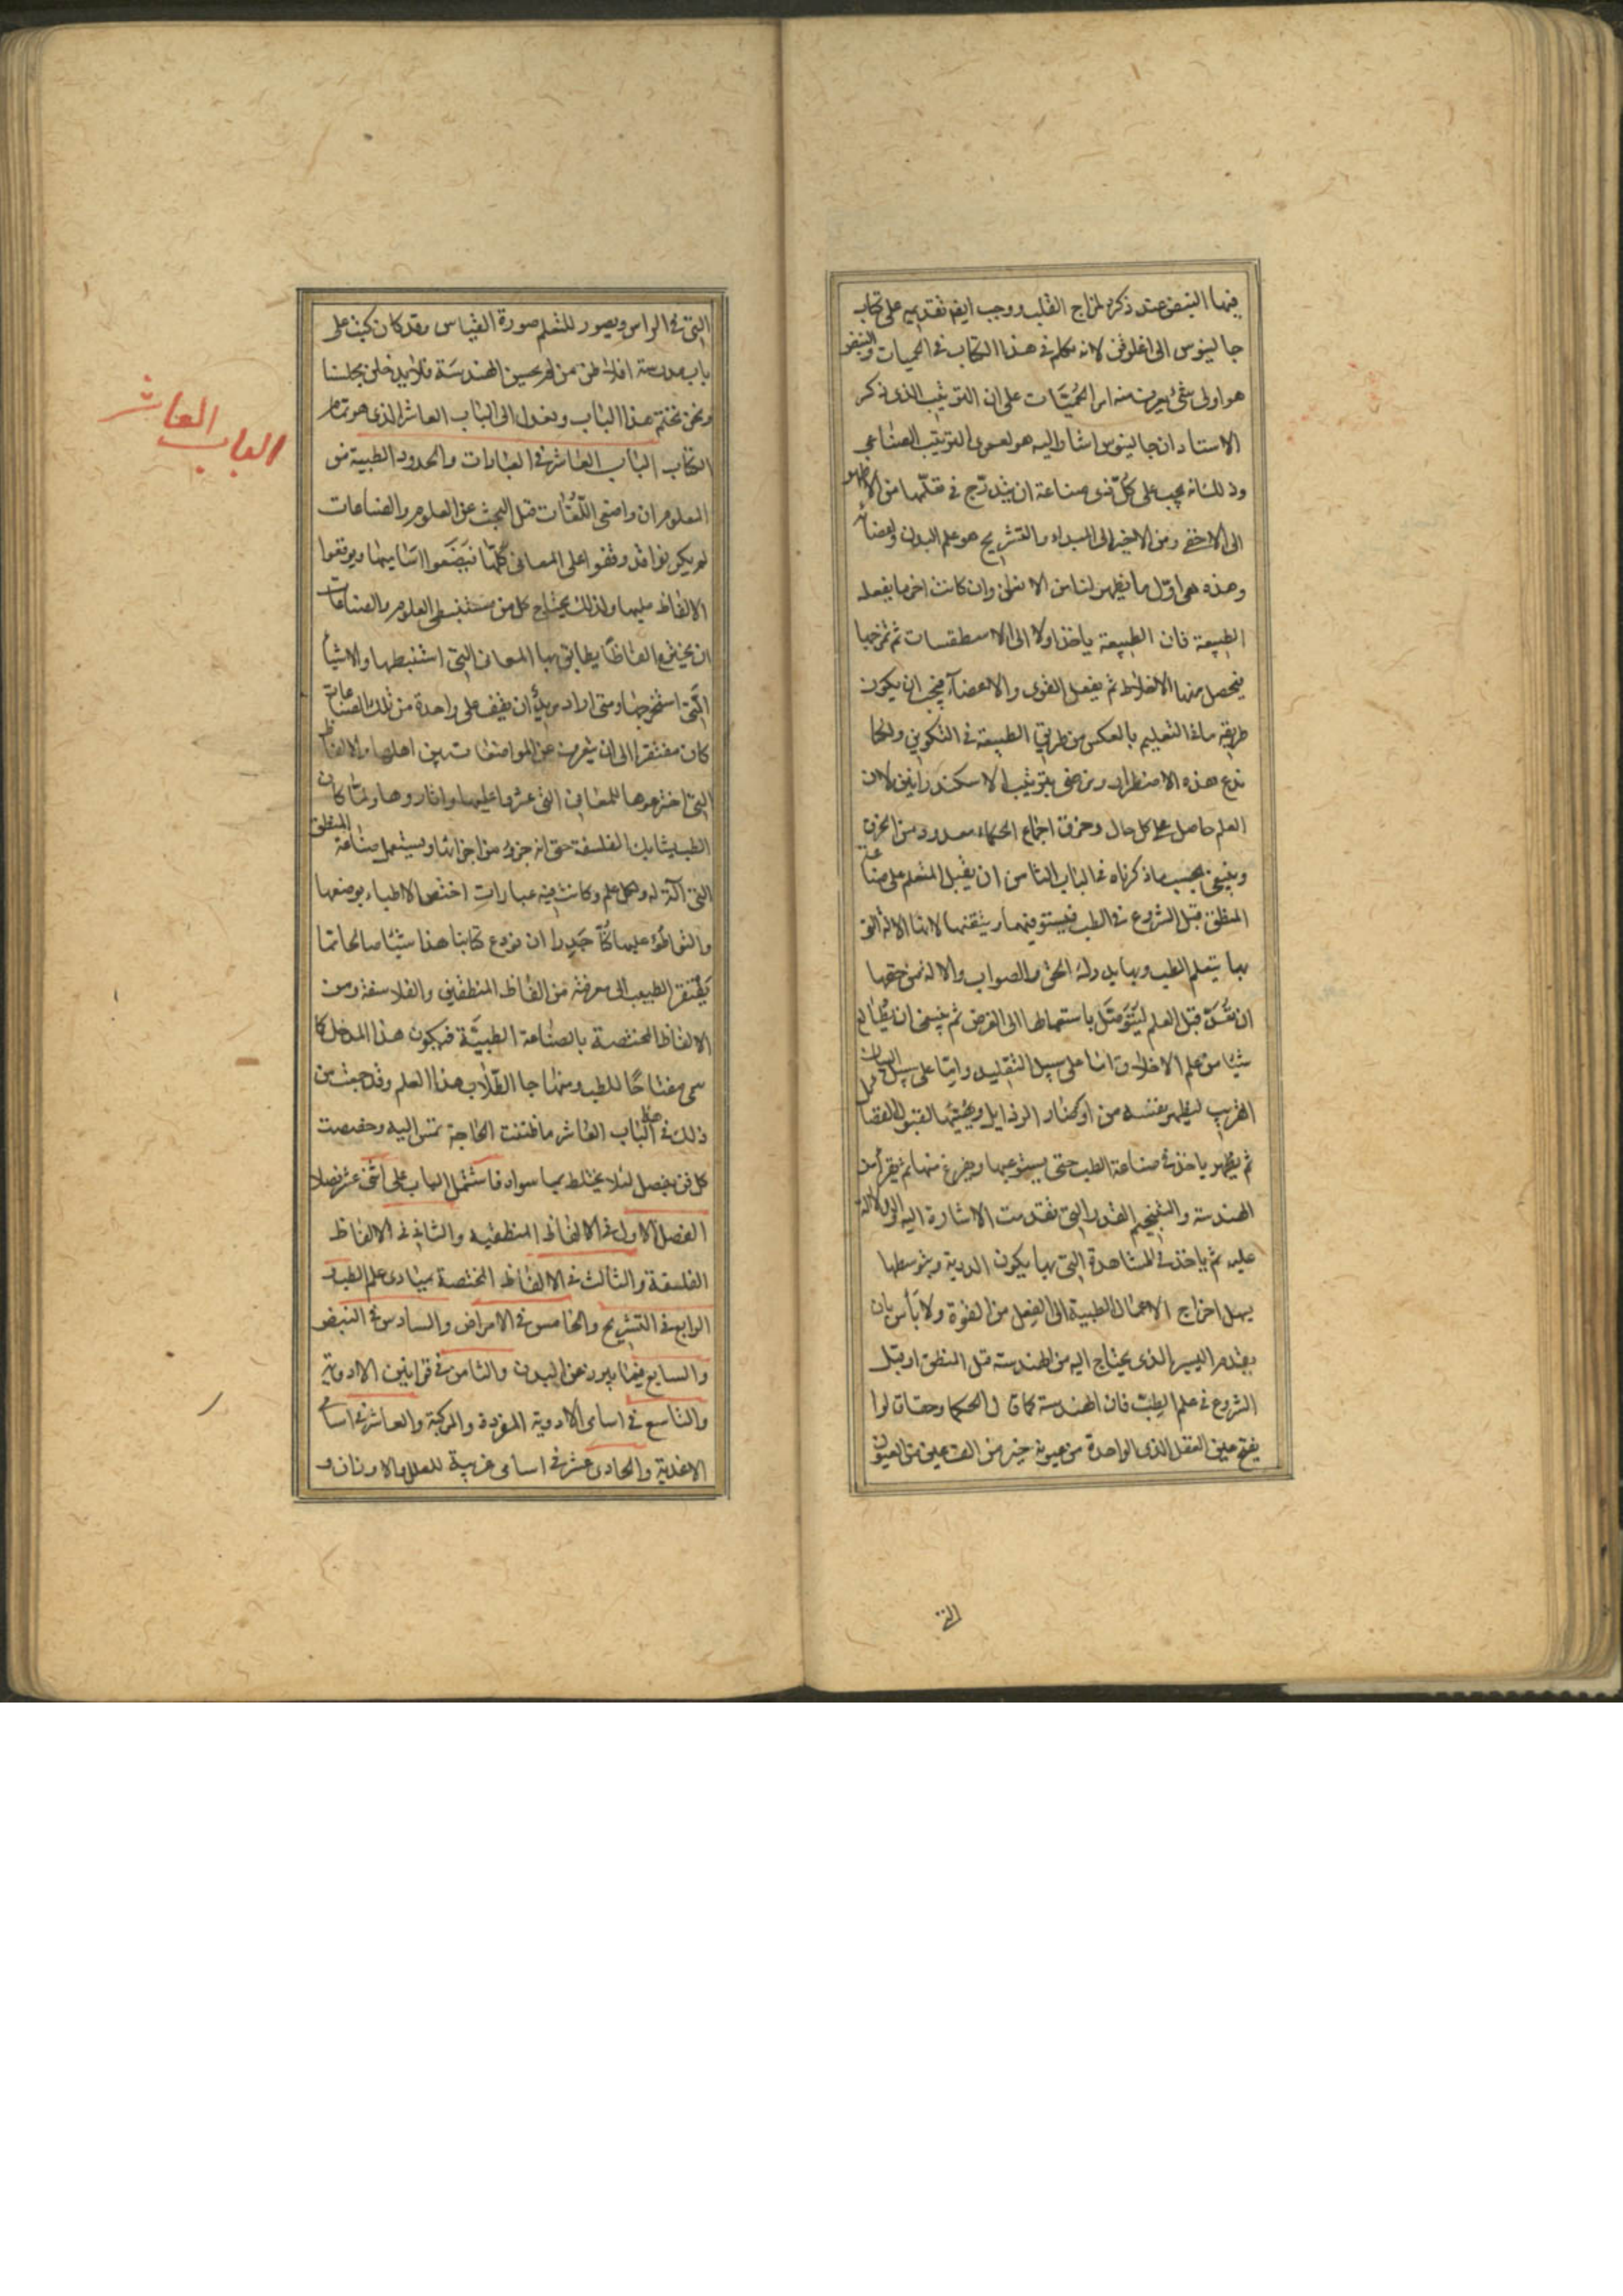 فيها النبض عند ذكره لمزاج القلب ووجب ايضا تقديمه على كتاب
جالينوس الى اغلوقن لانه تكلم فى هذا الكتاب فى الحميات والنبض
هو اولى شئ يعرف منه امر الحميات على ان الترتيب الذى ذكر
الاستاد ان جالينوس اشار اليه هو لعمرى الترتيب الصناعى
وذلك انه يجب على كل ذى صناعة ان يتدرج فى تعلمها من الاظهر
الى الاخفى ومن الاخير الى المبداء والتشريح هو علم البدن واعضائه
وهذه هى اول ما تظهر لنا من الانسان وان كانت اخر ما يفعله
الطبيعة فان الطبيعة ياخذ اولا الى الاسطقسات ثم تمزجها
فيحصل منها الاخلاط ثم يفعل القوى والاعضآء فيجب ان يكون
طريقه ماخذ التعليم بالعكس من طريق الطبيعة فى التكوين ولكنا
ندع هذه الاضطراب ونرضى بترتيب الاسكندرانيين لان
العلم حاصل على كل حال وخرق اجماع الحكماء معدود من الخرق
وينبغى بحسب ما ذكرناه فى الباب الثامن ان يقبل المتعلم على صناعة
المنطق قبل الشروع فى الطب فيستوفيها ويتقنها لانها الالة التى
بها يتعلم الطب وبها يدرك الحق والصواب والالة من حقها
ان تعد قبل العلم ليتوصل باستعمالها الى الغرض ثم ينبغى ان يطالع
شيئا من علم الاخلاق اما على سبيل التقليد واما على سبيل البيان
القريب ليطهر نفسه من اوضار الرذايل ويهيئها لقبول الفضايل
ثم يظهر ياخذ فى صناعة الطب حتى يستوعبها ويفرغ منها ثم يقرأ من
الهندسة والتنجيم القدر التى تقدمت الاشارة اليه والدلالة
عليه ثم ياخذ فى المشاهدة التى بها يكون الدربة وبتوسطها
يسهل اخراج الاعمال الطبية الى الفعل من القوة ولا بأس بان
يقدم اليسير الذى يحتاج اليه من الهندسة قبل المنطق او قبل
الشروع فى علم الطب فان الهندسة كما قال الحكماء وحقا قالوا
يفتح عين العقل الذى الواحدة من عيونه خير من الف عين من العيون
التى
التى فى الراس ويصور للمتعلم صورة القياس وقد كان كتب على
باب مدرسة افلاطن من لم يحسن الهندسة فلا يدخلن مجلسنا
ونحن نختم هذا الباب ونعدل الى الباب العاشر الذى هو تمام
الكتاب الباب العاشر فى العبارات والحدود الطبية من
المعلوم ان واضعى اللغات قبل البحث عن العلوم والصناعات
لم يكونوا قد وقفوا على المعانى كلها فيضعوا اساميها ويوقعوا
الالفاظ عليها ولذلك يحتاج كل من مستنبطى العلوم والصناعات
ان يخترع الفاظا يطابق بها المعانى التى استنبطها والاشيا
التى استخرجها ومتى اراد مريد ان يقف على واحدة من تلك الصناعات
كان مفتقرا الى ان يتعرف عن المواضعات بين اهلها والالفاظ
التى اخترعوها للمعانى التى عثروا عليها واثاروها ولما كان
الطب يشارك الفلسفة حتى انه جزؤ من اجزائها ويستعمل صناعة المنطق
التى آلة له ولكل علم وكانت فيه عبارات اختص الاطباء بوضعها
والتواطؤ عليها كنا جديرا ان نودع كتابنا هذا شيئا صالحا مما
يفتقر الطبيب الى معرفته من الفاظ المنطقيين والفلاسفة ومن
الالفاظ المختصة بالصناعة الطبية فيكون هذا المدخل كما
سمى مفتاحا للطب ومنهاجا لطلاب هذا العلم وقد جمعت من
ذلك فى هذا الباب العاشر ما ظننت الحاجة تمس اليه وخصصت
كل فن بفصل لئلا يختلط بما سواه فاشتمل الباب على اثنى عشر فصلا
الفصل الاول فى الالفاظ المنطقيه والثانى فى الالفاظ
الفلسفة والثالث فى الالفاظ المختصة بمبادى علم الطب و
الرابع فى التشريح والخامس فى الامراض والسادس فى النبض
والسابع فيما يبرز من البدن والثامن فى قوانين الادوية
والتاسع فى اسامى الادوية المفردة والمركبة والعاشر فى اسامى
الاغذية والحادى عشر فى اسامى غريبة للعلل والاوزان و
الباب العاشر